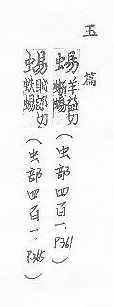 玉篇
蜴羊益切
蜥蜴
(虫部四百一、P361)
蝪
郎切
蛈蝪
(虫部四百一、P365)